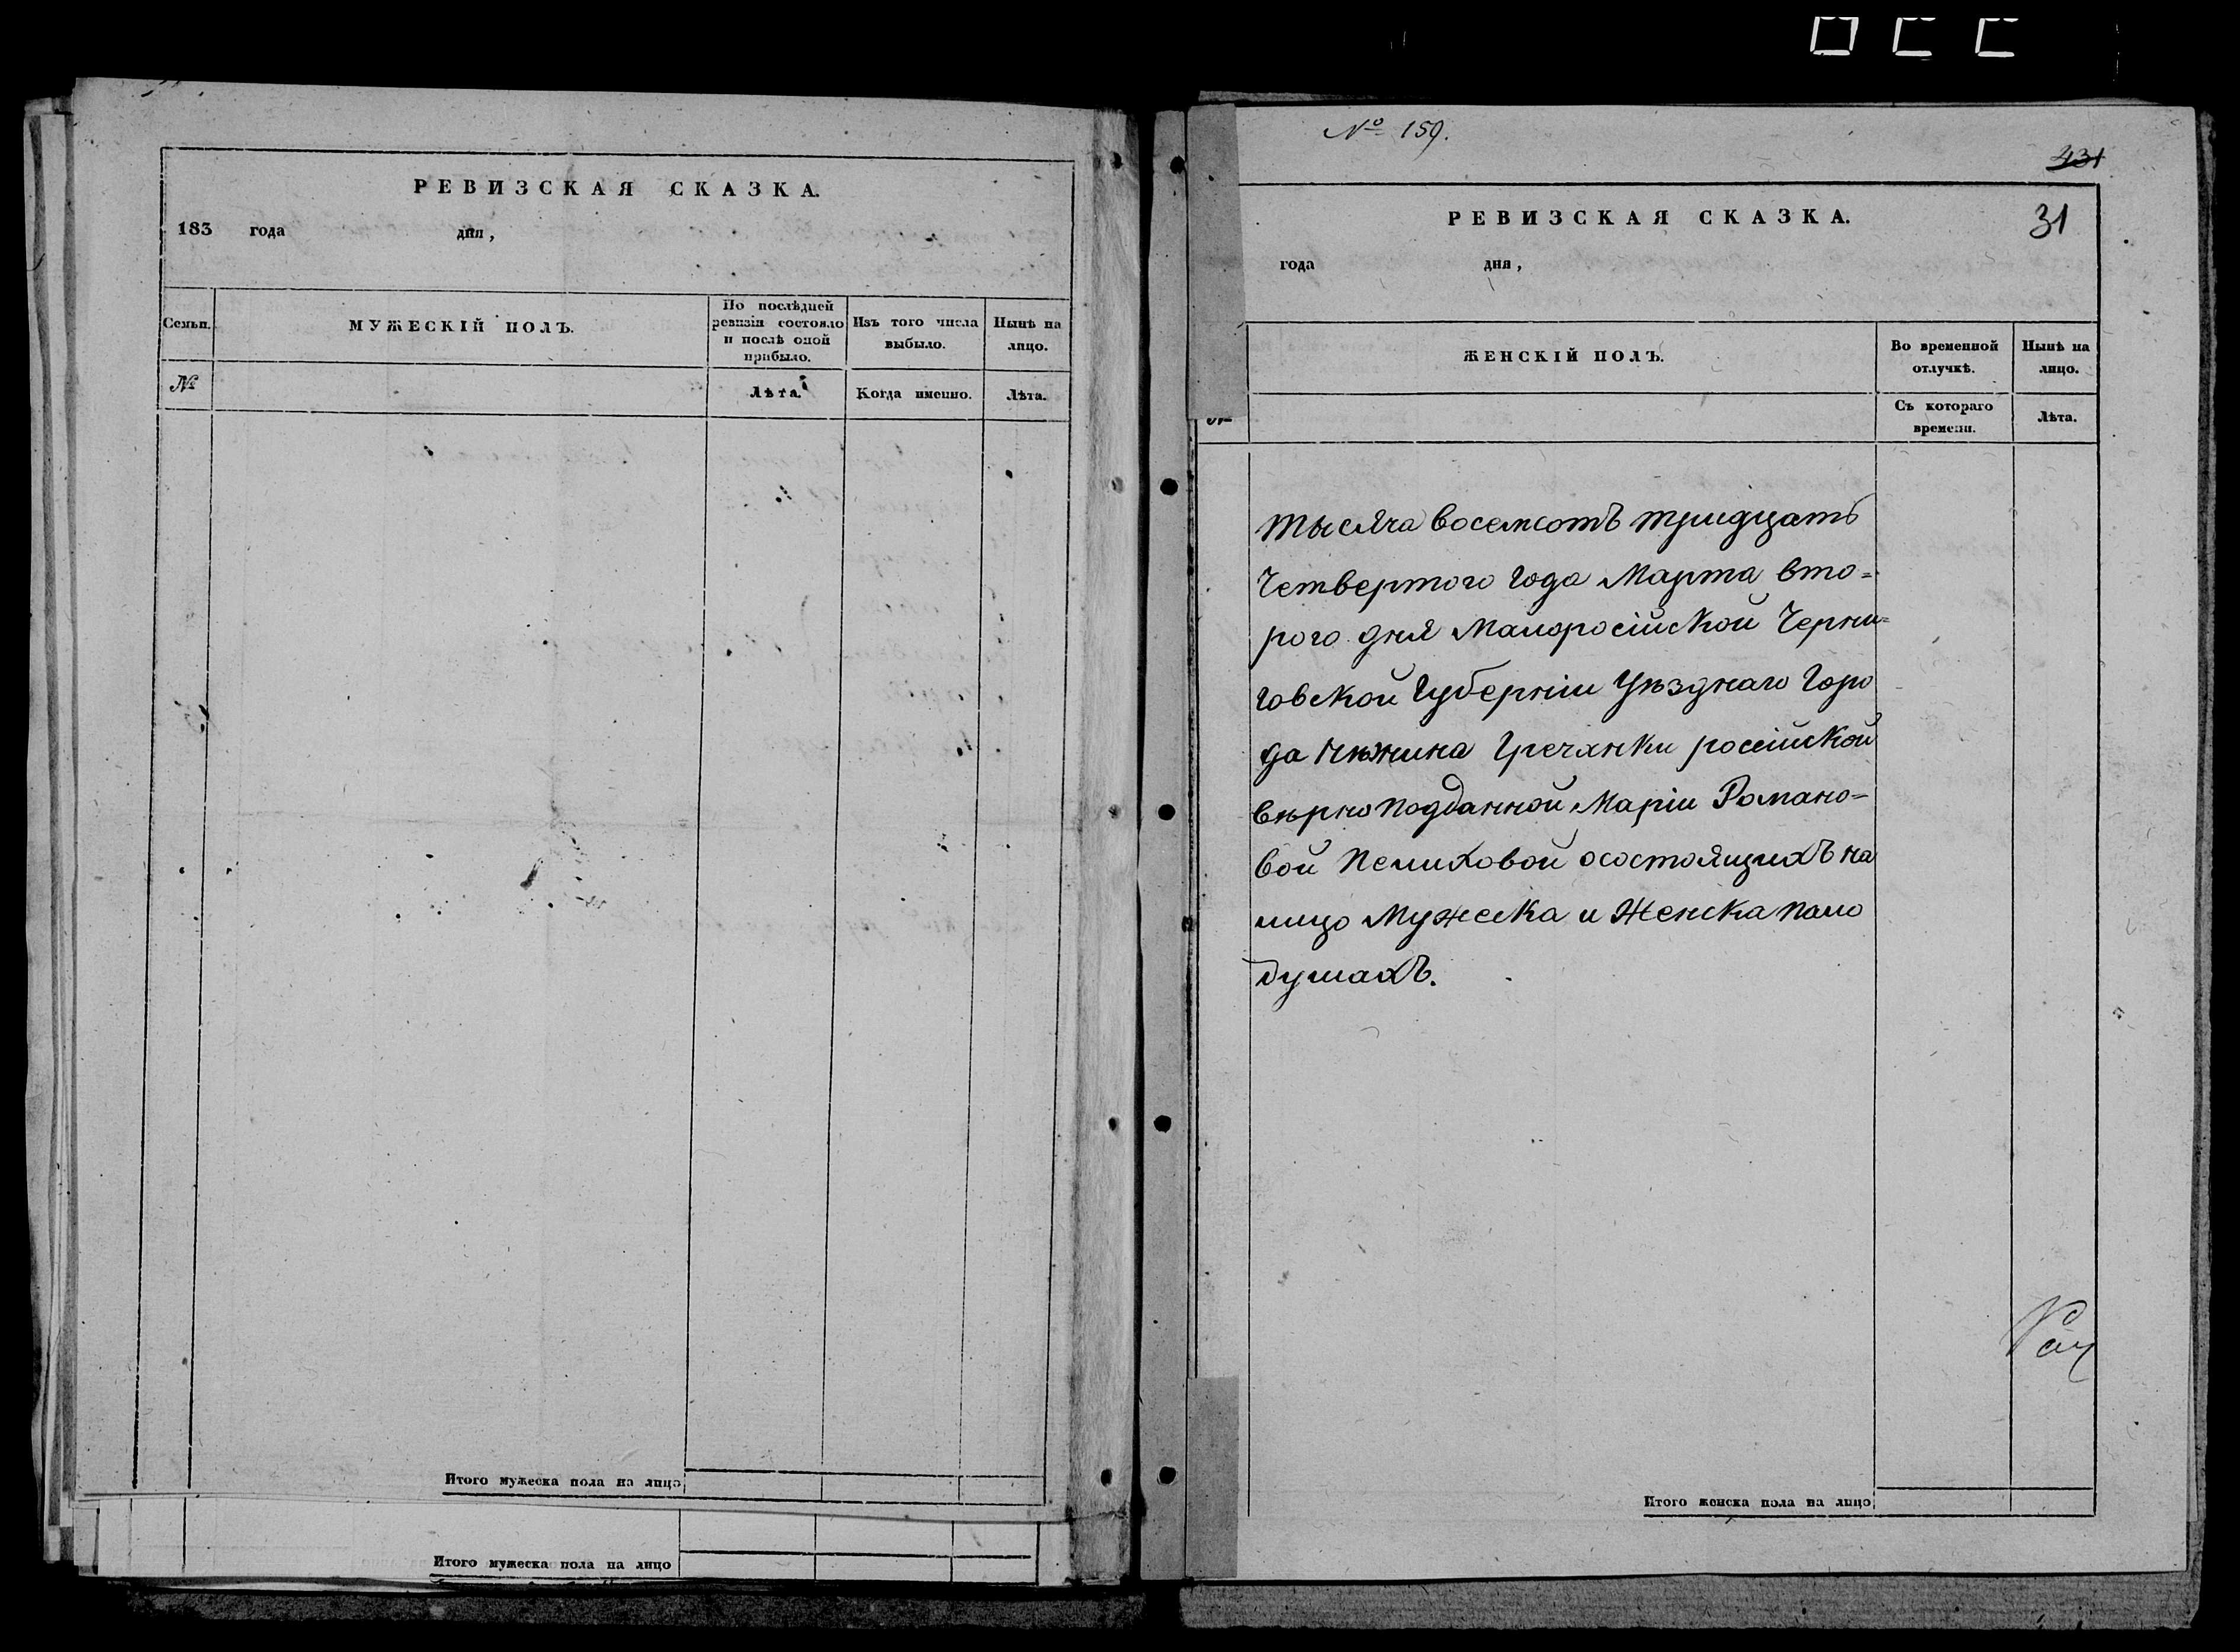 РЕВИЗСКАЯ СКАЗКА.
183 года дня,
Семьи.
МУЖЕСКІЙ ПОЛЪ.
По послѣдней
ревизіи состояло
и послѣ оной
прибыло.
Изъ того числа
выбыло.
Нынѣ на
лицо.
№
Лѣта.
Когда именно.
Лѣта.
Итого мужеска пола на лицо
Итого мужеска пола на лицо
№ 159.
431
31
РЕВИЗСКАЯ СКАЗКА.
года дня,
ЖЕНСКІЙ ПОЛЪ.
Во временной
отлучкѣ.
Нынѣ на
лицо.
№
Съ котораго
времени.
Лѣта.
тысяча восемсотъ тридцать
Четвертого года Марта вто=
рого дня Малоросійской Черни=
говской Губерніи Уѣзднаго Горо
да Нѣжина Гречанки російской
вѣрноподданной Маріи Романо=
вой Пелиховой осостоящихъ на
лицо Мужеска и Женска пало
душахъ.
Итого женска пола на лицо